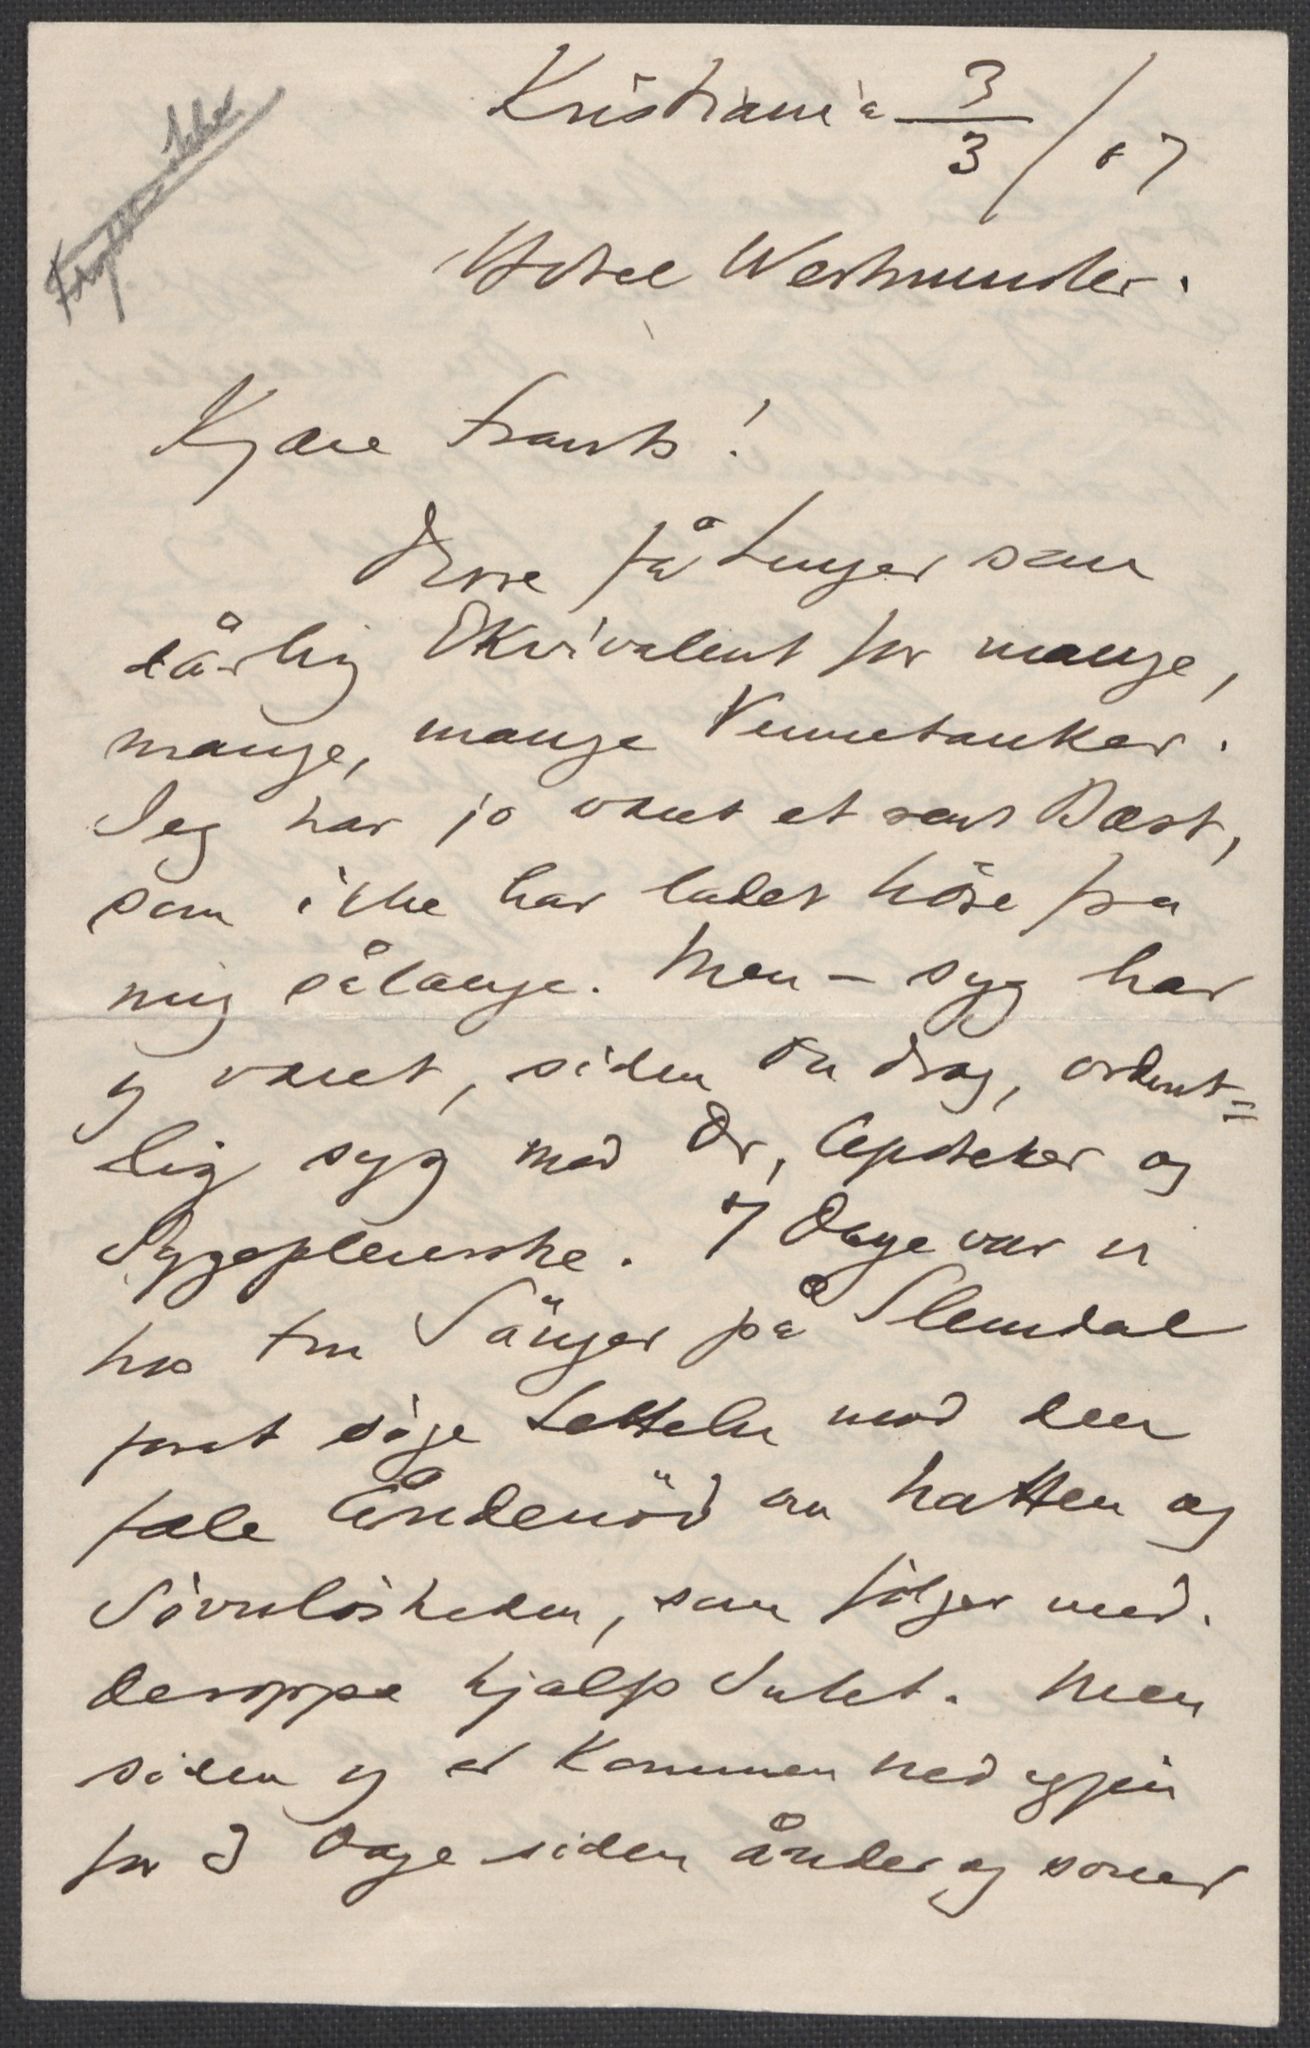 Kristiania 3/3/07
Hotel Westminster.
Kjære Frants!
Disse få Linjer som
dårlig Ekvivalent for mange,
mange, mange Vennetanker.
Jeg har jo været et rent Bæst,
som ikke har ladet høre fra
mig sålænge. Men – syg har
jeg været, siden Du drog, ordent=
lig syg med Dr, Apoteker og
Sygepleierske. 7 Dage var vi
hos Fru Sänger på Slemdal
forat söge Lettelse mod den
fæle Åndenöd om Natten og
Sövnlösheden, som fölger med.
Deroppe hjalp Intet. Men
siden jeg er kommen ned igjen
for 3 Dage siden ånder og sover